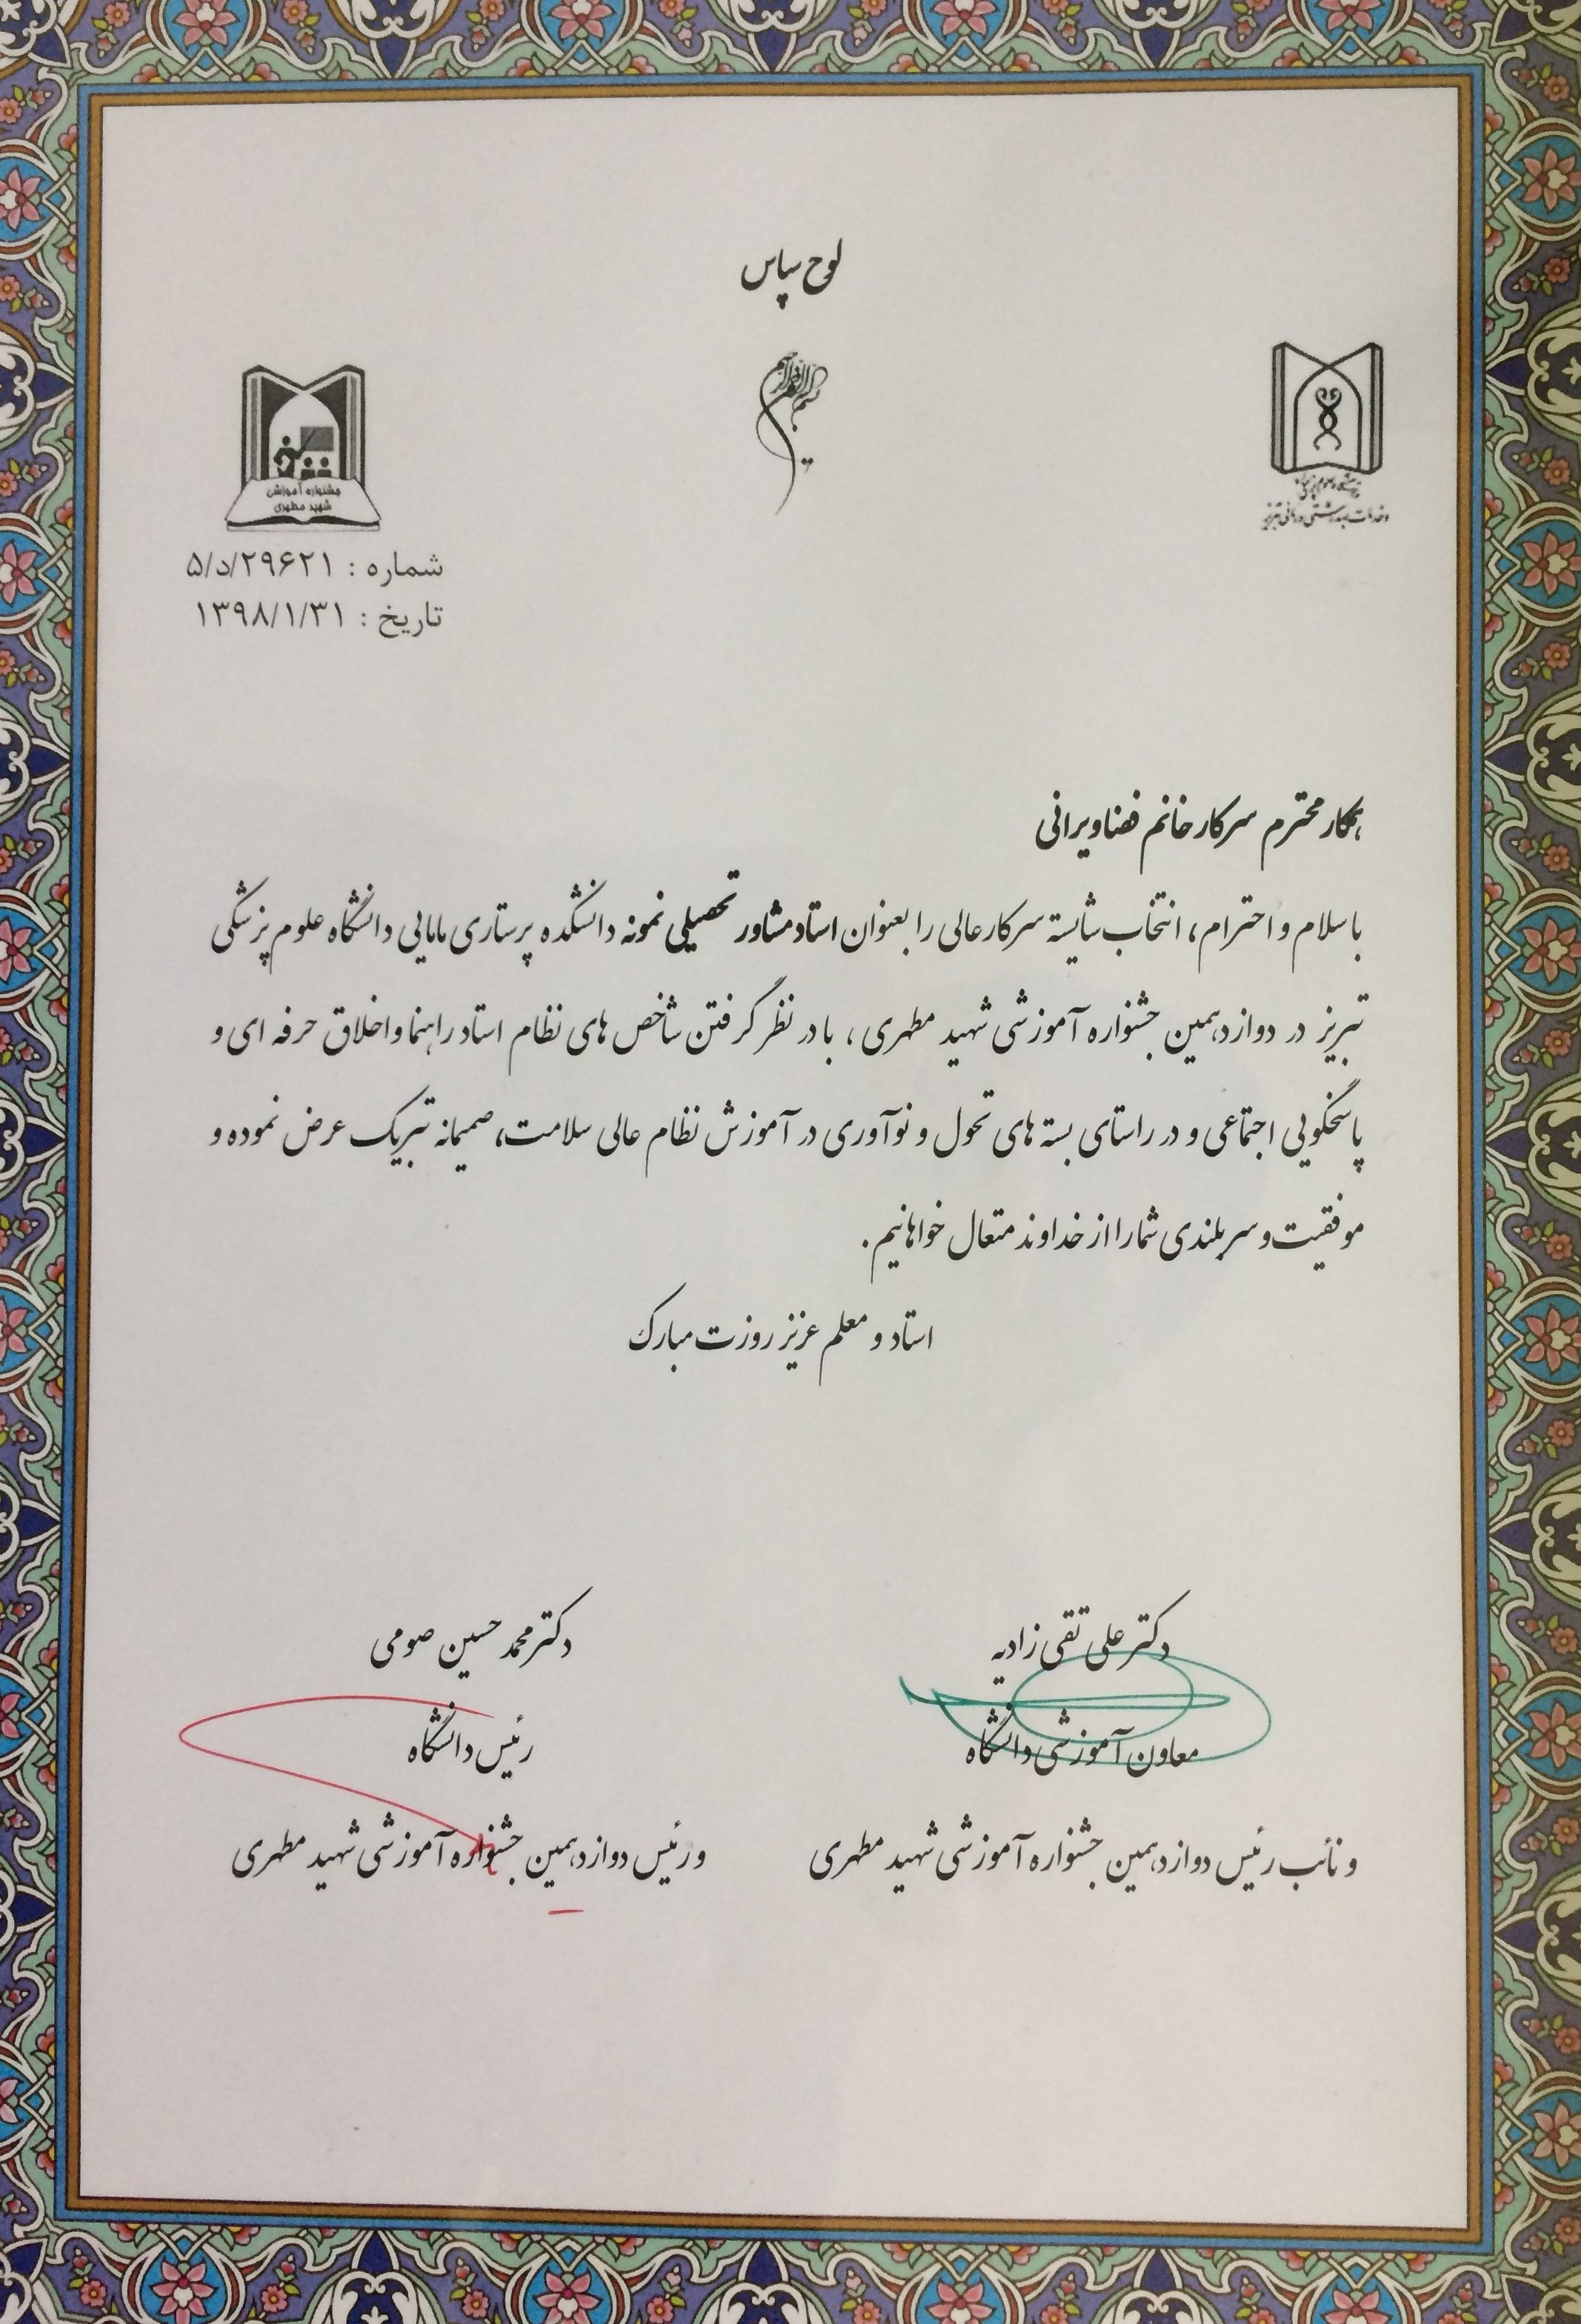 لوح سپاس
بسم الله الرحمن الرحیم
دانشگاه علوم پزشکی
و خدمات بهداشتی درمانی تبریز
جشنواره آموزشی
شهید مطهری
شماره : ۵/د/۲۹۶۲۱
تاریخ : ۱۳۹۸/۱/۳۱
همکار محترم سرکار خانم فضاویرانی
با سلام و احترام، انتخاب شایسته سرکار عالی را بعنوان استاد مشاور تحصیلی نمونه دانشکده پرستاری مامایی دانشگاه علوم پزشکی
تبریز در دوازدهمین جشنواره آموزشی شهید مطهری ، با در نظر گرفتن شاخص های نظام استاد راهنما و اخلاق حرفه ای و
پاسخگویی اجتماعی و در راستای بسته های تحول و نوآوری در آموزش نظام عالی سلامت، صمیمانه تبریک عرض نموده و
موفقیت و سربلندی شما را از خداوند متعال خواهانیم.
استاد و معلم عزیز روزت مبارک
دکتر علی تقی زادیه
معاون آموزشی دانشگاه
و نائب رئیس دوازدهمین جشنواره آموزشی شهید مطهری
دکتر محمد حسین صومی
رئیس دانشگاه
و رئیس دوازدهمین جشنواره آموزشی شهید مطهری